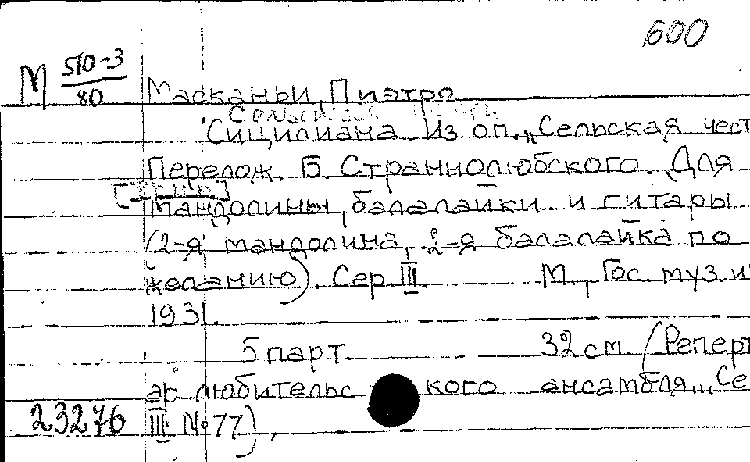 600
М 510-3
80
Масканьи, Пиэтро
Сицилиана из оп. "Сельская чест
Перелож. Б. Страннолюбского. Для
мандолины, балалайки и гитары
(2-я мандолина, 2-я балалайка по
желанию). Сер. III М., Гос. муз. и
1931.
5 парт. 32 см. (Реперт
ар любительского ансамбля. Се
23276 III № 77),